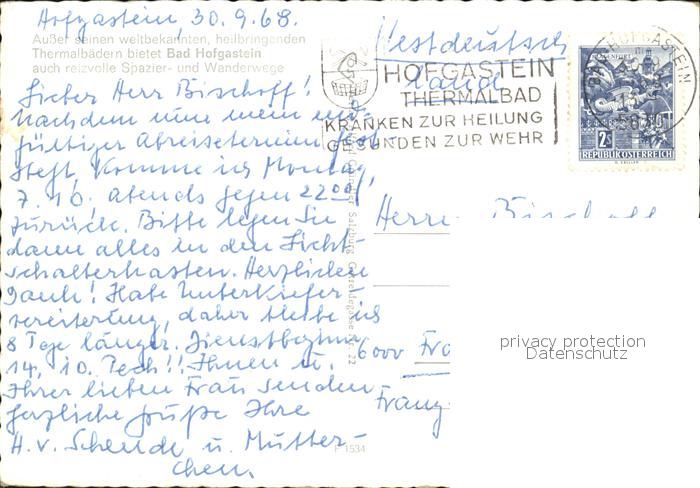 Hofgastein, 30.9.68.
Außer seinen weltbekannten, heilbringenden
Thermalbädern bietet Bad Hofgastein
auch reizvolle Spazier- und Wanderwege
Lieber Herr Bischoff!
Nachdem nun mein end-
gültiger Abreisetermin fest
steht, komme ich Montag,
7.10. abends gegen 22 00 h
zurück. Bitte legen Sie
dann alles in den Licht-
schalterkasten. Herzlichen
Dank! Habe Unterkiefer-
vereiterung, daher bleibe ich
8 Tage länger. Dienstbeginn
14.10. Pech!! Ihnen u.
Ihrer lieben Frau senden
herzliche Grüße Ihre
H. v. Schende u. Mutter-
chen.
Westdeutsch
land
HOFGASTEIN
THERMALBAD
KRANKEN ZUR HEILUNG
GESUNDEN ZUR WEHR
BAD HOFGASTEIN
5630
2 S
REPUBLIK ÖSTERREICH
Salzburg
22
P 1534
Herrn Bischoff
6000 Fra
Franz
privacy protection
Datenschutz